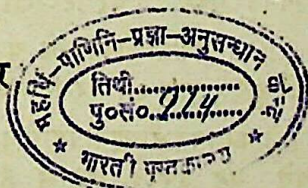 र
महर्षि-पाणिनि-प्रज्ञा-अनुसन्धान
तिथी..................
पु०सं०.214..........
भारती पुस्तकालय